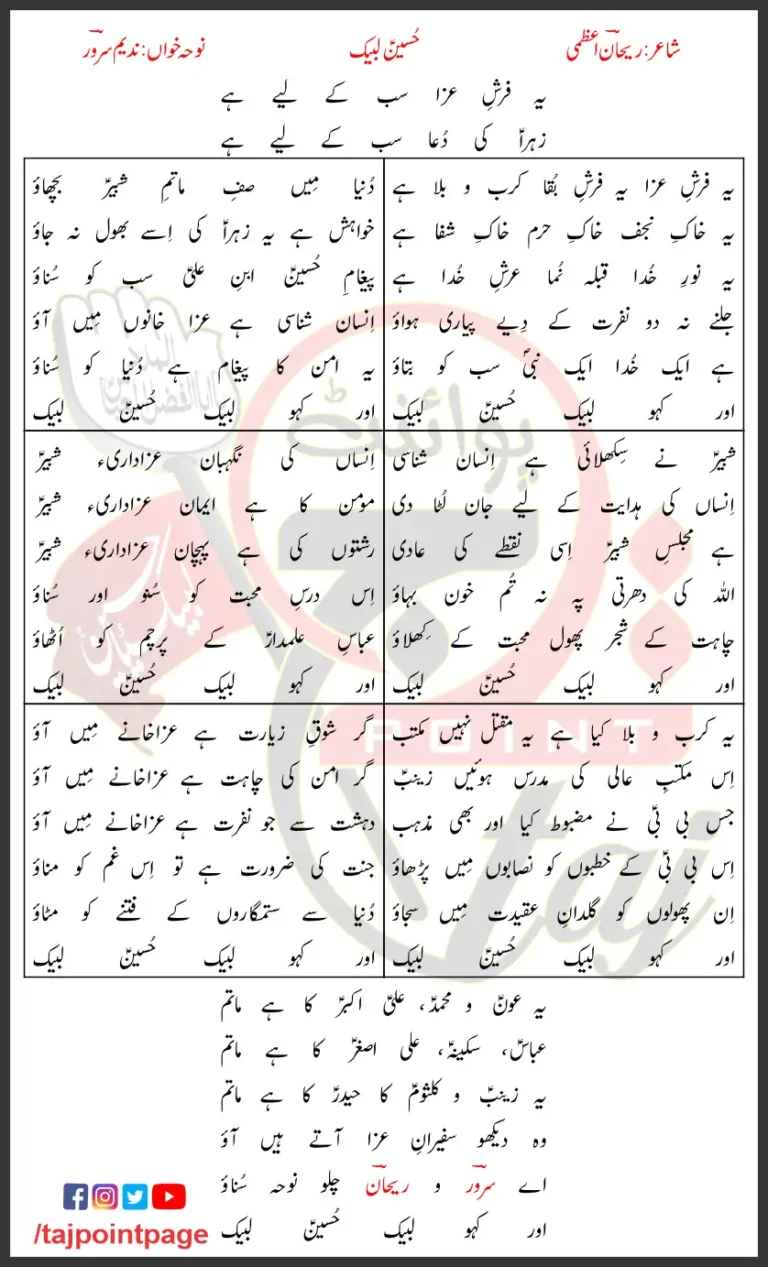 شاعر: ریحان اعظمی حُسینؑ لبیک نوحہ خواں: ندیم سرور
یہ فرشِ عزا سب کے لیے ہے
زہراؑ کی دُعا سب کے لیے ہے
یہ فرشِ عزا یہ فرشِ بُقا کرب و بلا ہے
یہ خاکِ نجف خاکِ حرم خاکِ شفا ہے
یہ نورِ خُدا قبلہ نُما عرشِ خُدا ہے
جلنے نہ دو نفرت کے دِیے پیاری ہواؤ
ہے ایک خُدا ایک نبیؐ سب کو بتاؤ
اور کہو لبیک حُسینؑ لبیک
دُنیا مِیں صفِ ماتمِ شبیرؑ بچھاؤ
خواہش ہے یہ زہراؑ کی اِسے بھول نہ جاؤ
پیغامِ حُسینؑ ابنِ علیؑ سب کو سُناؤ
اِنسان شناسی ہے عزا خانوں مِیں آؤ
یہ امن کا پیغام ہے دُنیا کو سُناؤ
اور کہو لبیک حُسینؑ لبیک
شبیرؑ نے سِکھلائی ہے اِنسان شناسی
اِنساں کی ہدایت کے لیے جان لُٹا دی
ہے مجلسِ شبیرؑ اِسی نقطے کی عادی
اللہ کی دھرتی پہ نہ تُم خون بہاؤ
چاہت کے شجر پھول محبت کے کِھلاؤ
اور کہو لبیک حُسینؑ لبیک
اِنساں کی نگہبان عزاداریء شبیرؑ
مومن کا ہے ایمان عزاداریء شبیرؑ
رشتوں کی ہے پہچان عزاداریء شبیرؑ
اِس درسِ محبت کو سُنو اور سُناؤ
عباسِ علمدارؑ کے پرچم کو اُٹھاؤ
اور کہو لبیک حُسینؑ لبیک
یہ کرب و بلا کیا ہے یہ مقتل نہیں مکتب
اِس مکتبِ عالی کی مدرس ہوئیں زینبؑ
جس بی بیؑ نے مضبوط کیا اور بھی مذہب
اِس بی بیؑ کے خطبوں کو نصابوں مِیں پڑھاؤ
اِن پھولوں کو گلدانِ عقیدت مِیں سجاؤ
اور کہو لبیک حُسینؑ لبیک
گر شوقِ زیارت ہے عزاخانے مِیں آؤ
گر امن کی چاہت ہے عزاخانے مِیں آؤ
دہشت سے جو نفرت ہے عزاخانے مِیں آؤ
جنت کی ضرورت ہے تو اِس غم کو مناؤ
دُنیا سے ستمگاروں کے فتنے کو مٹاؤ
اور کہو لبیک حُسینؑ لبیک
یہ عونؑ و محمدؑ، علیؑ اکبرؑ کا ہے ماتم
عباسؑ، سکینہؑ، علی اصغرؑ کا ہے ماتم
یہ زینبؑ و کلثومؑ کا حیدرؑ کا ہے ماتم
وہ دیکھو سفیرانِ عزا آتے ہیں آؤ
اے سرور و ریحان چلو نوحہ سُناؤ
اور کہو لبیک حُسینؑ لبیک
/tajpointpage
پوائنٹ
POINT
taj